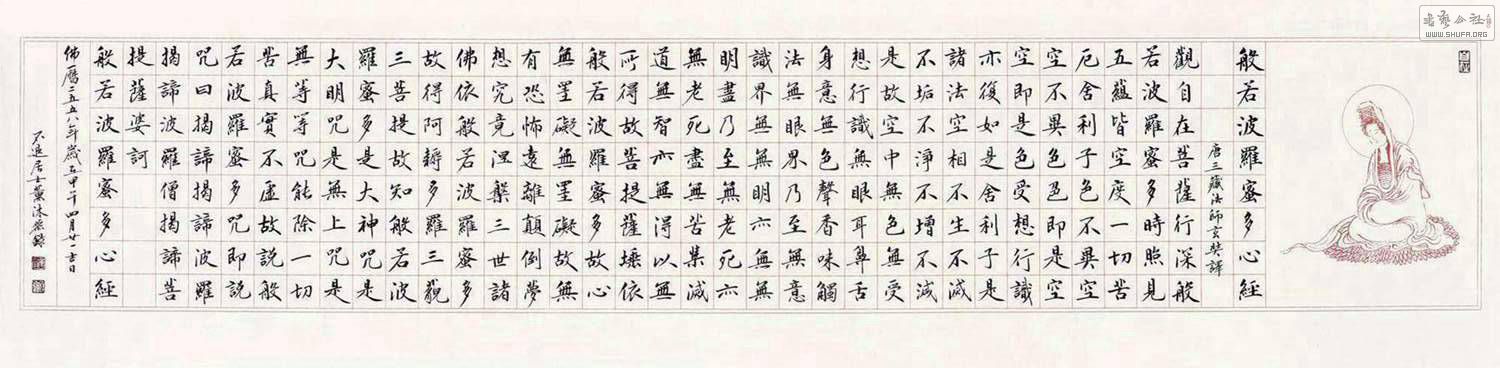 般若波羅蜜多心經
唐三藏法師玄奘譯
觀自在菩薩行深般
若波羅蜜多時照見
五蘊皆空度一切苦
厄舍利子色不異空
空不異色色即是空
空即是色受想行識
亦復如是舍利子是
諸法空相不生不滅
不垢不淨不增不減
是故空中無色無受
想行識無眼耳鼻舌
身意無色聲香味觸
法無眼界乃至無意
識界無無明亦無無
明盡乃至無老死亦
無老死盡無苦集滅
道無智亦無得以無
所得故菩提薩埵依
般若波羅蜜多故心
無罣礙無罣礙故無
有恐怖遠離顛倒夢
想究竟涅槃三世諸
佛依般若波羅蜜多
故得阿耨多羅三藐
三菩提故知般若波
羅蜜多是大神咒是
大明咒是無上咒是
無等等咒能除一切
苦真實不虛故說般
若波羅蜜多咒即說
咒曰揭諦揭諦波羅
揭諦波羅僧揭諦菩
提薩婆訶
般若波羅蜜多心經
佛曆二五五八年歲在甲午四月廿一吉日
不退居士薰沐恭錄
書藝公社
WWW.SHUFA.ORG